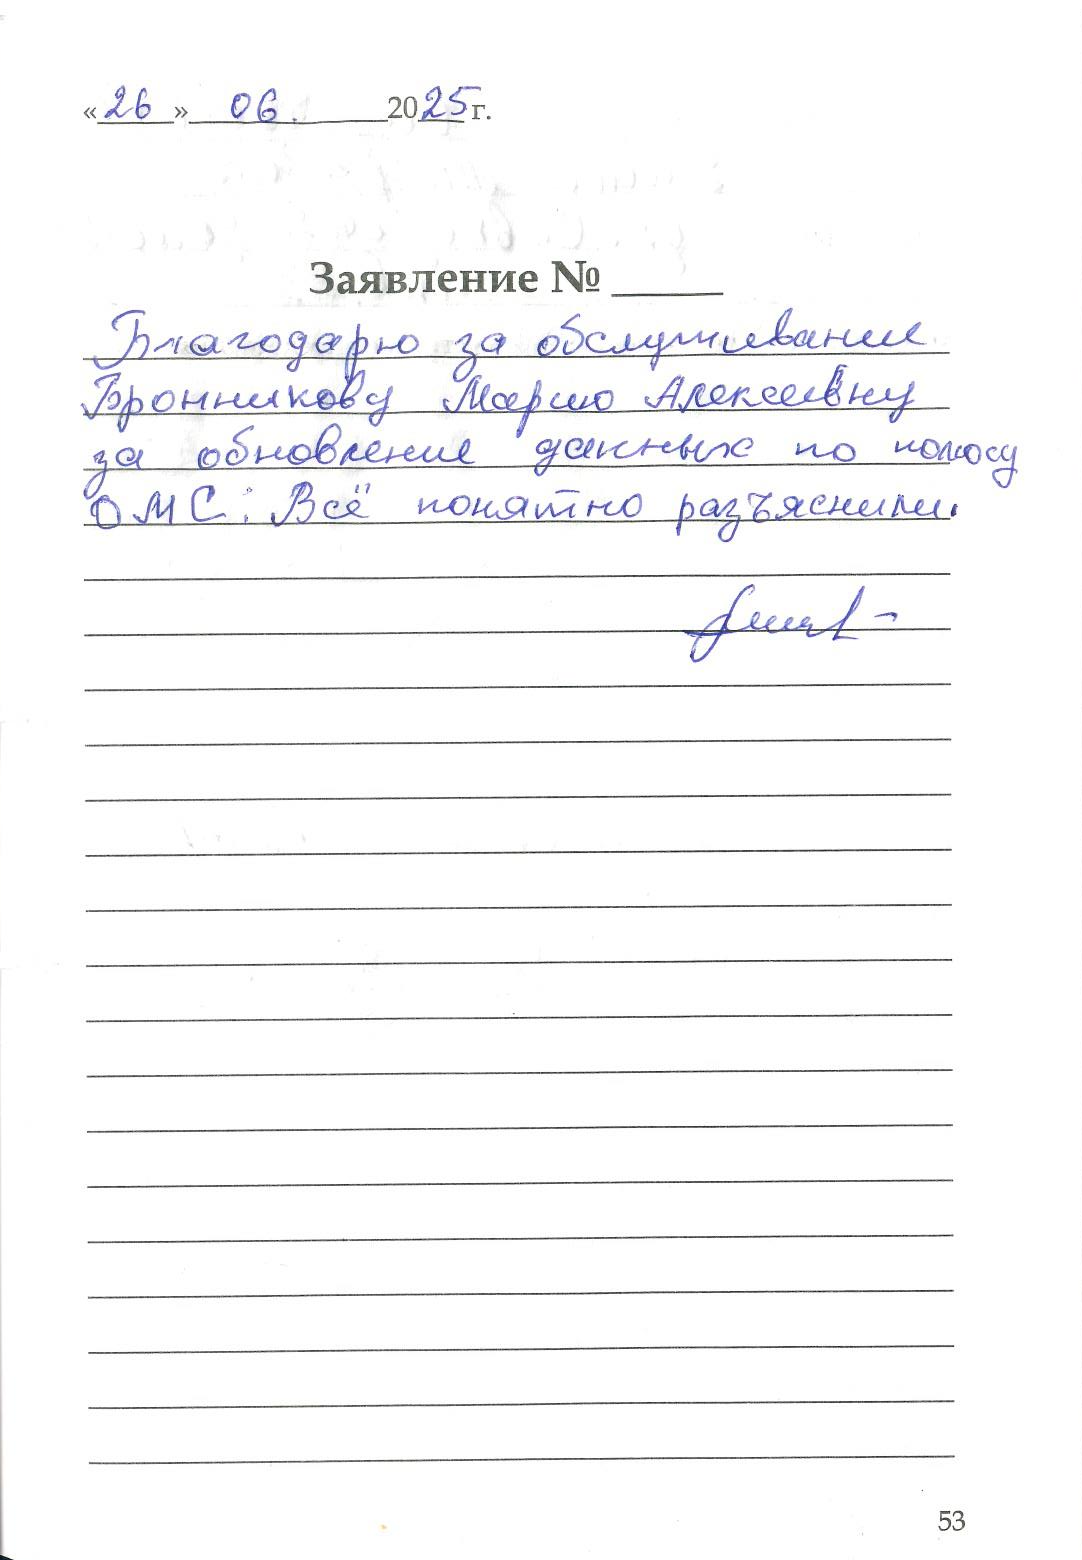 «26» 06. 2025 г.
Заявление № _____
Благодарю за обслуживание
Бронникову Марию Алексеевну
за обновление данных по полюсу
ОМС. Всё понятно разъяснили.
53